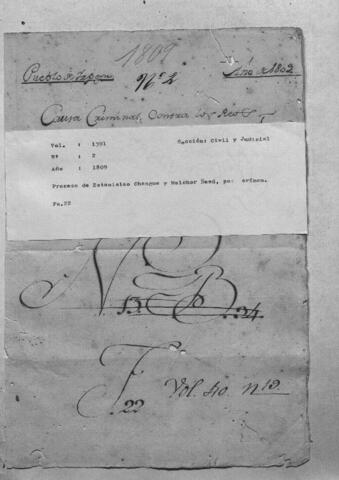 1809
Pueblo de
Nº 2
Año de 1802
Causa Criminal, Contra los Reos
Vol.: 1391 Sección: Civil y Judicial
Nº : 2
Año : 1809
Proceso de Estanislao Changue y Melchor por crímen.
Fs.22
N B
13 24
F. 22
Vol. 40. n 12.